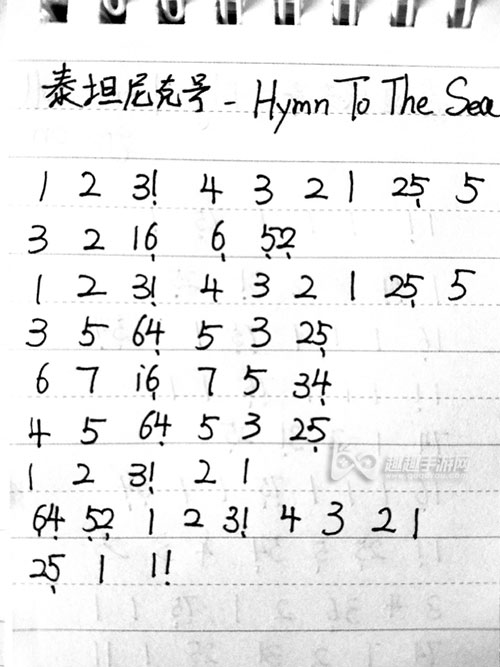 泰坦尼克号 - Hymn To The Sea
1 2 31̣ 4 3 2 1 25̣ 5
3 2 16̣ 6̣ 5̣2̣
1 2 31̣ 4 3 2 1 25̣ 5
3 5 64̣ 5 3 25̣
6 7 i6̣ 7 5 34̣
4 5 64̣ 5 3 25̣
1 2 31̣ 2 1
64̣ 5̣2̣ 1 2 31̣ 4 3 2 1
25̣ 1 11̣
超超手游网